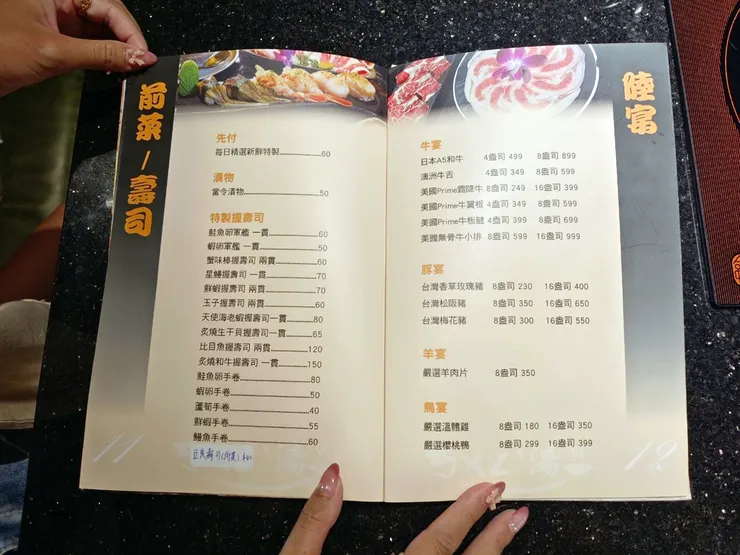 前菜/壽司
先付
每日精選新鮮特製 60
漬物
當令漬物 50
特製握壽司
鮭魚卵軍艦 一貫 60
蝦卵軍艦 一貫 50
蟹味棒握壽司 兩貫 60
星鰻握壽司 一貫 70
鮮蝦握壽司 兩貫 70
玉子握壽司 兩貫 60
天使海老蝦握壽司一貫 80
炙燒生干貝握壽司一貫 65
比目魚握壽司 兩貫 120
炙燒和牛握壽司 一貫 150
鮭魚卵手卷 80
蝦卵手卷 50
蘆筍手卷 40
鮮蝦手卷 55
鰻魚手卷 60
豆皮壽司(兩貫) $40
11
陸宴
牛宴
日本A5和牛 4盎司 499 8盎司 899
澳洲牛舌 4盎司 349 8盎司 599
美國Prime霜降牛 8盎司 249 16盎司 399
美國Prime牛翼板 4盎司 349 8盎司 599
美國Prime牛板腱 4盎司 399 8盎司 699
美國無骨牛小排 8盎司 599 16盎司 999
豚宴
台灣香草玫瑰豬 8盎司 230 16盎司 400
台灣松阪豬 8盎司 350 16盎司 650
台灣梅花豬 8盎司 300 16盎司 550
羊宴
嚴選羊肉片 8盎司 350
鳥宴
嚴選溫體雞 8盎司 180 16盎司 350
嚴選櫻桃鴨 8盎司 299 16盎司 399
12